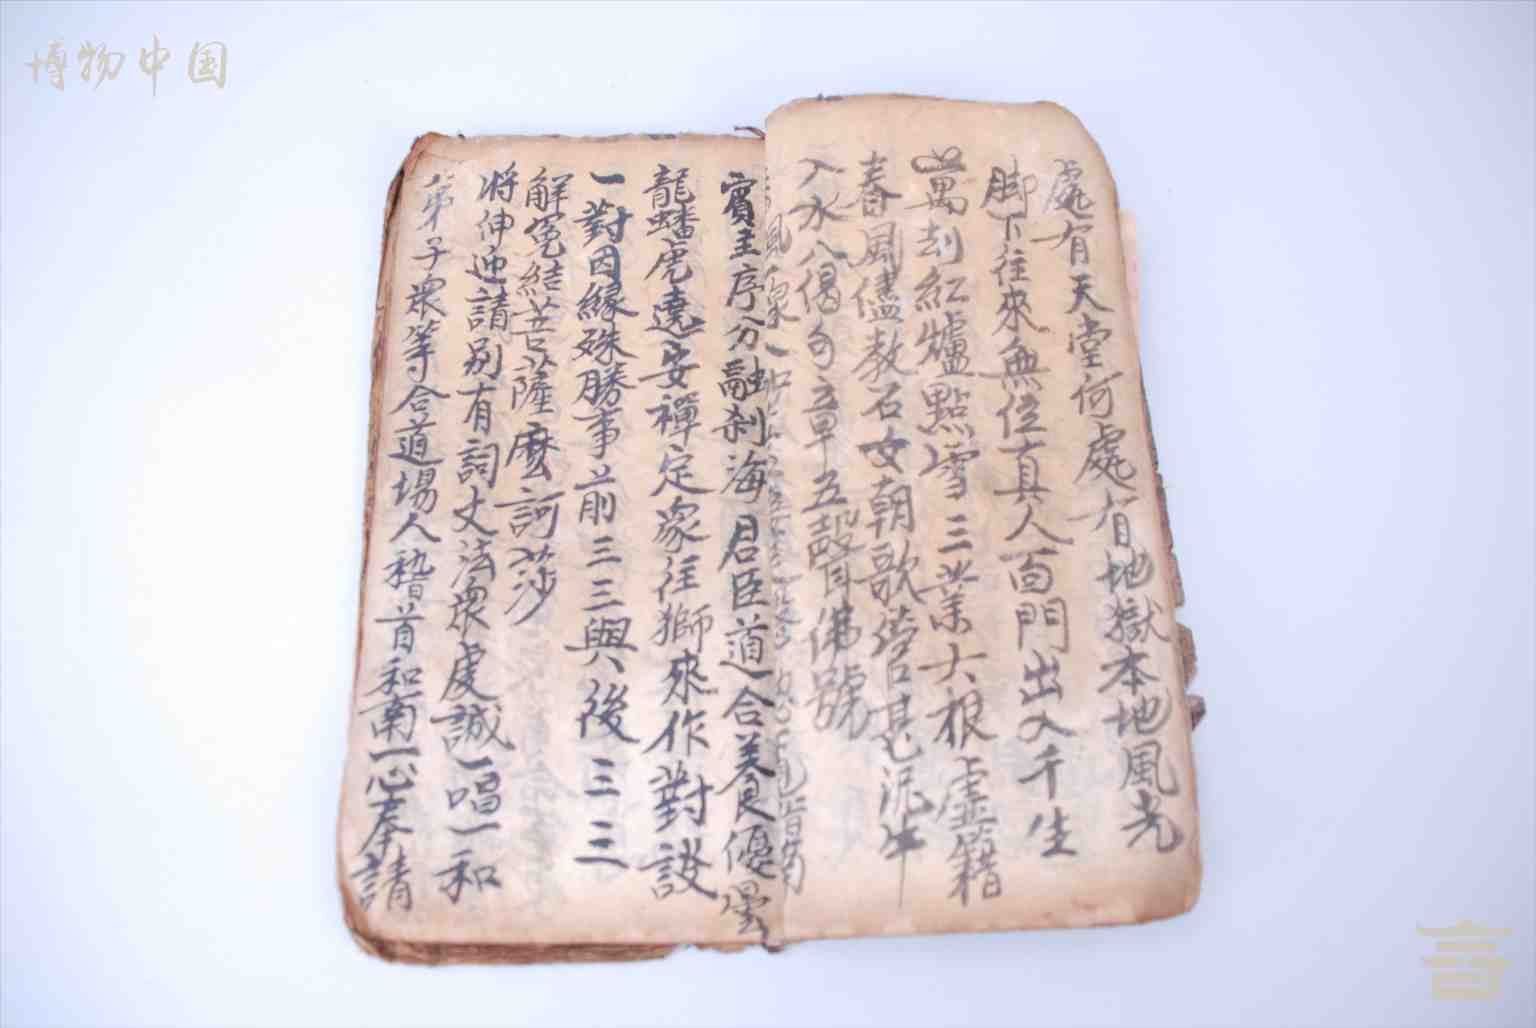 博物中国
處有天堂何處有地獄本地風光
脚下往來無位真人面門出入千生
萬刼紅爐點雪三業六根虛籍
春風儘教石女朝歌管甚泥牛
入水八偈句章五聲佛號
賓主序分融刹海君臣道合養優曇
龍蟠虎遶安禪定象往獅來作對談
一對因緣殊勝事前三三與後三三
解冤結菩薩麼訶薩
將伸迎請别有詞文法衆虔誠一唱一和
弟子衆等合道場人稽首和南一心奉請